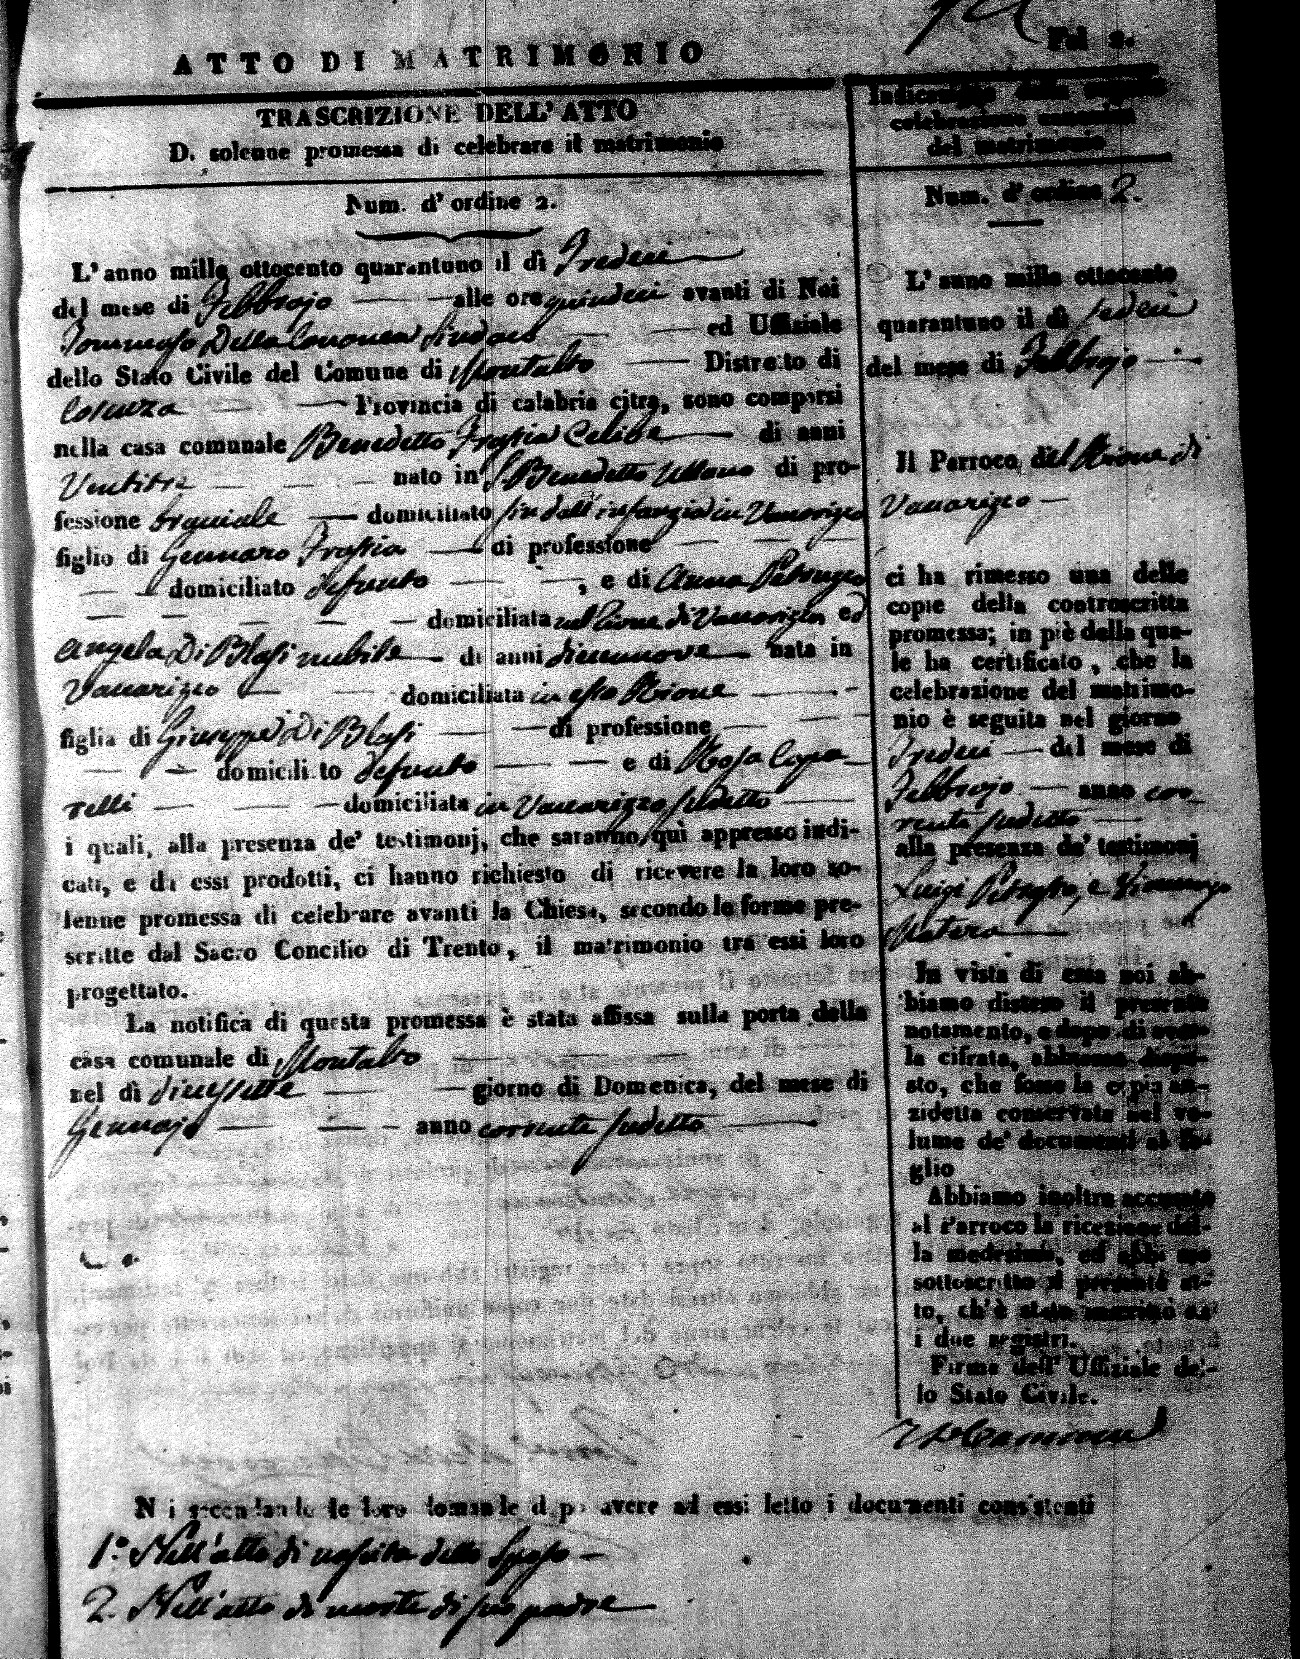 Fol 2.
ATTO DI MATRIMONIO
TRASCRIZIONE DELL' ATTO
Di solenne promessa di celebrare il matrimonio
Num. d' ordine 2.
L' anno mille ottocento quarantuno il dì Tredici
del mese di Febbrajo alle ore quindeci avanti di Noi
Tommaso Della Sindaco ed Uffiziale
dello Stato Civile del Comune di Montalto Distretto di
Cosenza Provincia di calabria citra, sono comparsi
nella casa comunale Benedetto Frassia Celibe di anni
Ventitre nato in S. Benedetto Ullano di pro-
fessione braciale domiciliato sin dall'infanzia in Vaccarizzo
figlio di Gennaro Frassia di professione
domiciliato defunto , e di Anna Petrasso
domiciliata nel Rione di Vaccarizzo ed
Angela Di Blasi nubile di anni diecinnove nata in
Vaccarizzo domiciliata in esso Rione
figlia di Giuseppe Di Blasi di professione
domicilito defunto e di Rosa Capo-
relli domiciliata in Vaccarizzo sudetto
i quali, alla presenza de' testimonj, che saranno qui appresso indi-
cati, e da essi prodotti, ci hanno richiesto di ricevere la loro so-
lenne promessa di celebrare avanti la Chiesa, secondo le forme pre-
scritte dal Sacro Concilio di Trento, il matrimonio tra essi loro
progettato.
La notifica di questa promessa è stata affissa sulla porta della
casa comunale di Montalto
nel dì giorno di Domenica, del mese di
Gennajo anno corrente sudetto
Indicazione della
celebrazione canonica
del matrimonio
Num. d' ordine 2.
L' anno mille ottocento
quarantuno il dì sedeci
del mese di Febbrajo
Il Parroco del Rione di
Vaccarizzo
ci ha rimesso una delle
copie della controscritta
promessa; in piè della qua-
le ha certificato, che la
celebrazione del matrimo-
nio è seguita nel giorno
Tredeci del mese di
Febbrajo anno cor-
rente sudetto
alla presenza de' testimonj
Luigi Petrasso, e Vincenzo
Matera
In vista di essa noi ab-
biamo disteso il presente
notamento, e dopo di aver-
la cifrata, abbiamo dispo-
sto, che fosse la copia an-
zidetta conservata nel vo-
lume de' documenti al fo-
glio
Abbiamo inoltre accusato
al Parroco la ricezione del-
la medesima, ed abbiamo
sottoscritto il presente at-
to, ch' è stato inscritto su'
i due registri.
Firma dell' Uffiziale del-
lo Stato Civile.
Noi secondando le loro domande dopo avere ad essi letto i documenti consistenti
1.° Nell'atto di nascita dello Sposo
2. Nell'atto di morte di suo padre